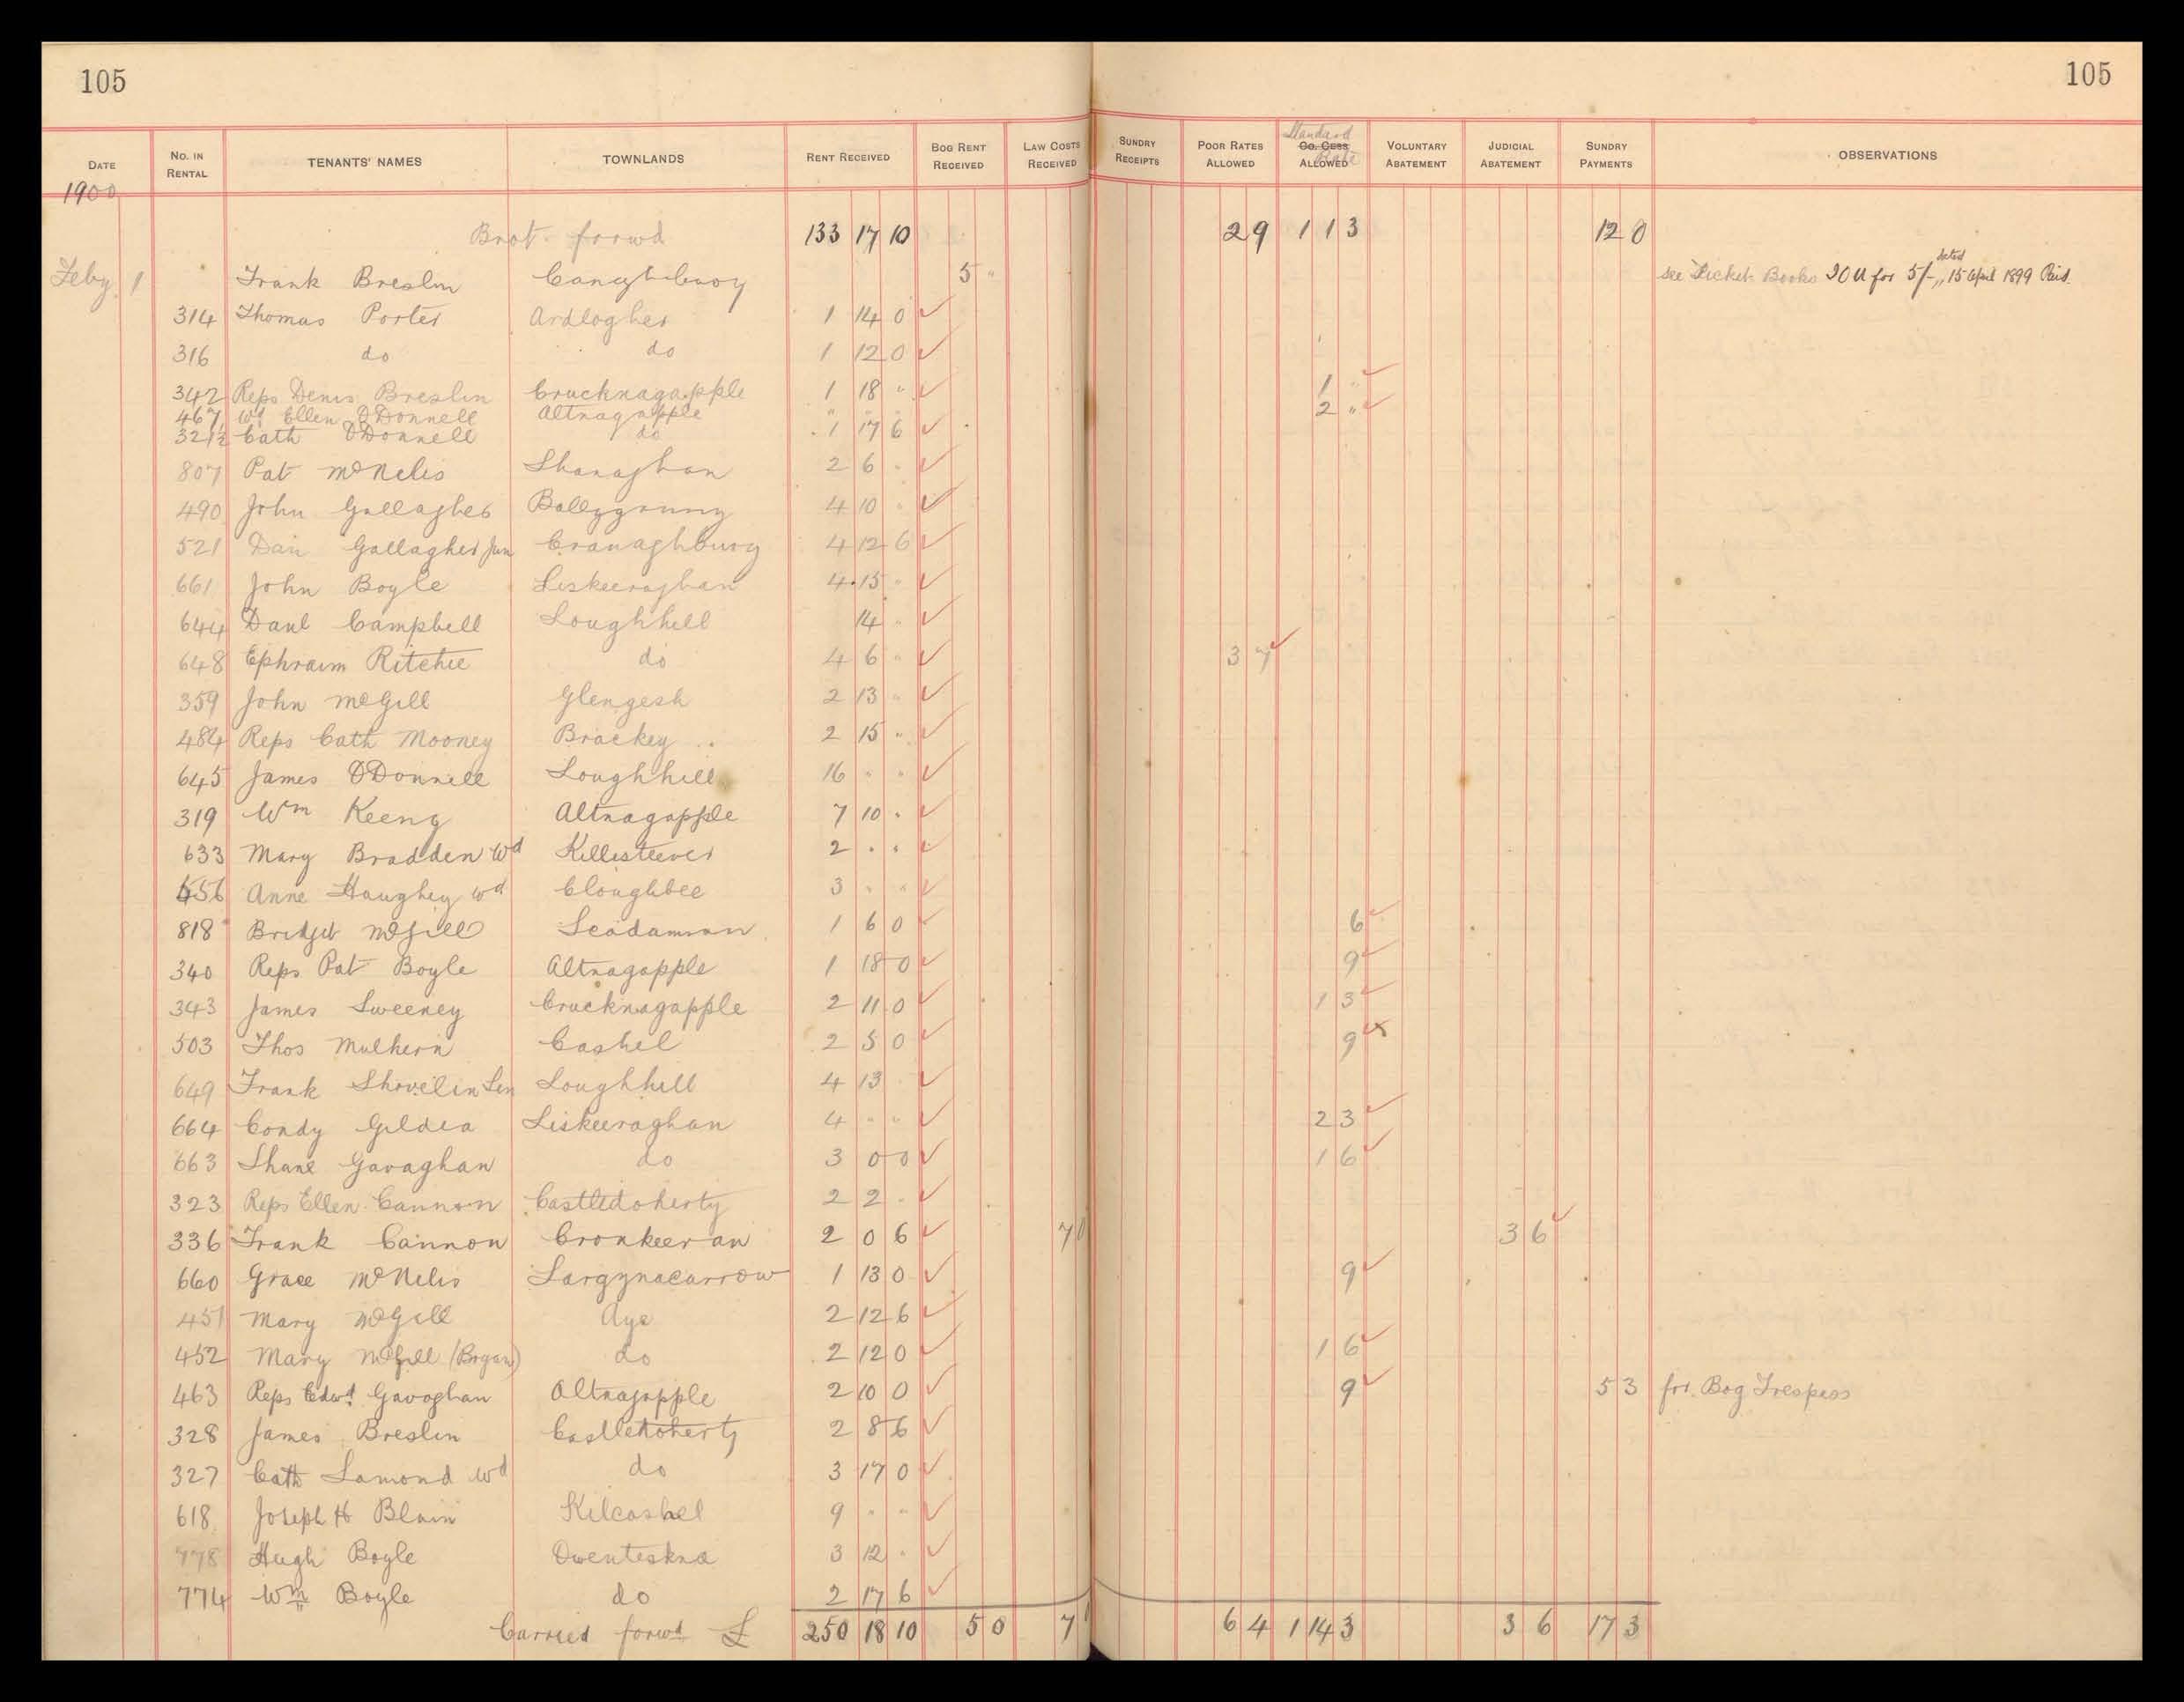 105 105
DATE No. IN RENTAL TENANTS' NAMES TOWNLANDS RENT RECEIVED BOG RENT RECEIVED LAW COSTS RECEIVED SUNDRY RECEIPTS POOR RATES ALLOWED Co. Cess Standard Rate ALLOWED VOLUNTARY ABATEMENT JUDICIAL ABATEMENT SUNDRY PAYMENTS OBSERVATIONS
1900
Brot. forwd 133 17 10 2 9 1 1 3 12 0
Feby. 1 Frank Breslin 5 " see Ticket Books IOU for 5/- dated 15 April 1899 Paid.
314 Thomas Porter Ardlogher 1 14 0
316 do do 1 12 0
342 Reps Denis Breslin Crucknagapple 1 18 " 1 "
467 Wd Ellen O'Donnell Altnagapple " " " 2 "
321½ Cath O'Donnell do 1 17 6
807 Pat McNelis Shanaghan 2 6 "
490 John Gallagher Ballyganny 4 10 "
521 Dan Gallagher Jun Cranaghbuoy 4 12 6
661 John Boyle Liskeeraghan 4 15 "
644 Danl Campbell Loughhill 14 "
648 Ephraim Ritchie do 4 6 " 3 7
359 John McGill Glengesh 2 13 "
484 Reps Cath Mooney Brackey 2 15 "
645 James O'Donnell Loughhill 16 " "
319 Wm Keeny Altnagapple 7 10 "
633 Mary Bradden Wd Killisteever 2 " "
656 Anne Haughey wd Cloughbee 3 " "
818 Bridget McGill Scadaman 1 6 0 6
340 Reps Pat Boyle Altnagapple 1 18 0 9
343 James Sweeney Crucknagapple 2 11 0 1 3
503 Thos Mulhern Cashel 2 5 0 9
649 Frank Shovelin Sen Loughhill 4 13
664 Condy Gildea Liskeeraghan 4 " " 2 3
663 Shane Gavaghan do 3 0 0 1 6
323 Reps Ellen Cannon Castledoherty 2 2 "
336 Frank Cannon Cronkeeran 2 0 6 7 0 3 6
660 Grace McNelis Largynacarrow 1 13 0 9
451 Mary McGill Aga 2 12 6
452 Mary McGill (Brogan) do 2 12 0 1 6
463 Reps Edwd. Gavaghan Altnagapple 2 10 0 9 5 3 for Bog Trespass
328 James Breslin Castledoherty 2 8 6
327 Cath Lamond Wd do 3 17 0
618 Joseph H Blain Kilcashel 9 " "
778 Hugh Boyle Owenteskna 3 12 "
774 Wm Boyle do 2 17 6
Carried forwd £ 250 18 10 5 0 7 6 4 1 14 3 3 6 17 3